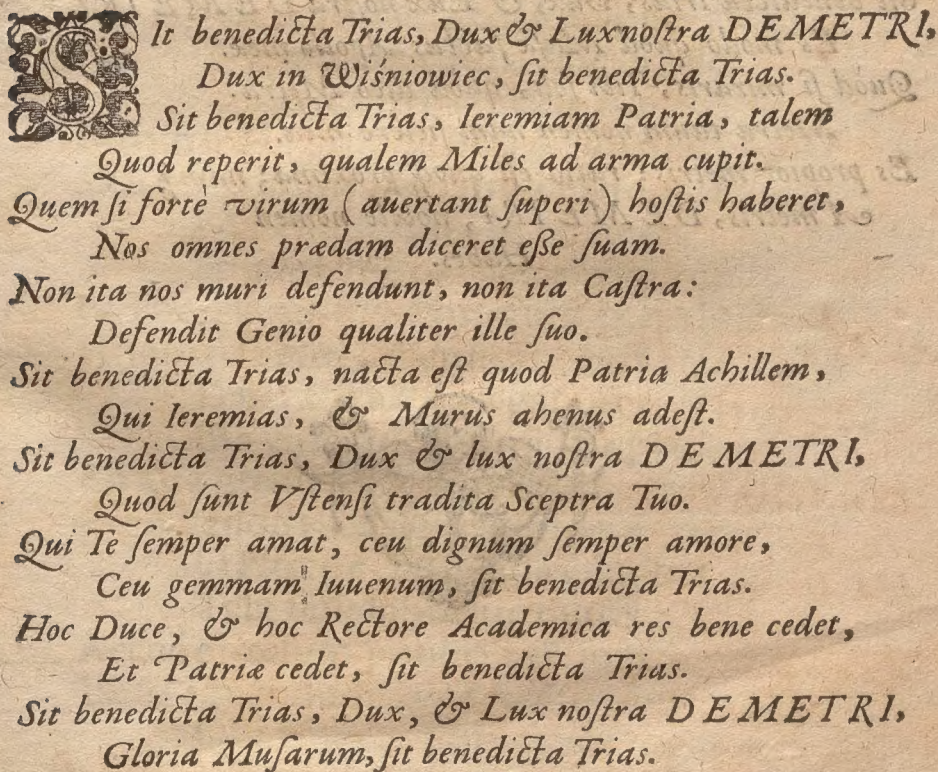 SIt benedicta Trias, Dux & Lux noſtra DEMETRI,
Dux in Wiśniowiec, ſit benedicta Trias.
Sit benedicta Trias, Ieremiam Patria, talem
Quod reperit, qualem Miles ad arma cupit.
Quem ſi fortè virum (auertant ſuperi) hoſtis haberet,
Nos omnes prædam diceret eße ſuam.
Non ita nos muri defendunt, non ita Caſtra:
Defendit Genio qualiter ille ſuo.
Sit benedicta Trias, nacta eſt quod Patria Achillem,
Qui Ieremias, & Murus ahenus adeſt.
Sit benedicta Trias, Dux & lux noſtra DEMETRI,
Quod ſunt Vſtenſi tradita Sceptra Tuo.
Qui Te ſemper amat, ceu dignum ſemper amore,
Ceu gemmam Iuuenum, ſit benedicta Trias.
Hoc Duce, & hoc Rectore Academica res bene cedet,
Et Patriæ cedet, ſit benedicta Trias.
Sit benedicta Trias, Dux, & Lux noſtra DEMETRI,
Gloria Muſarum, ſit benedicta Trias.